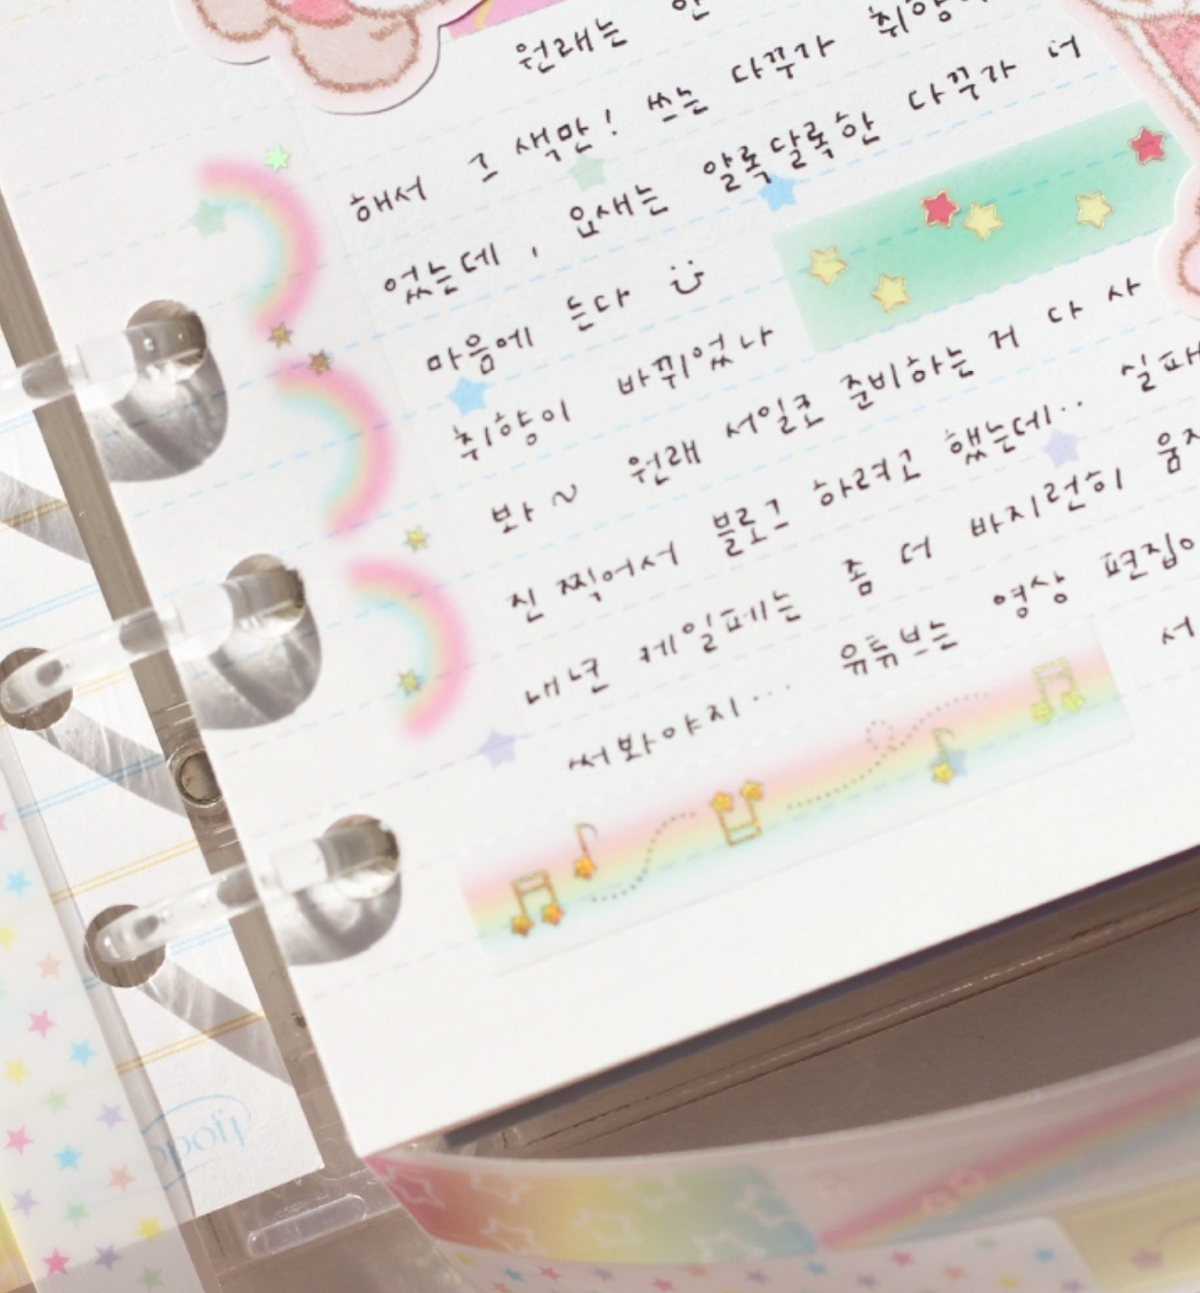 원래는 한
해서 그 색만! 쓰는 다꾸가 취향이
었는데, 요새는 알록달록한 다꾸가 더
마음에 든다
취향이 바뀌었나
보아~ 원래 서일코 준비하는 거 다 사
진 찍어서 블로그 하려고 했는데.. 실패
내년 케일페는 좀 더 바지런히 움직
써봐야지... 유튜브는 영상 편집이
서